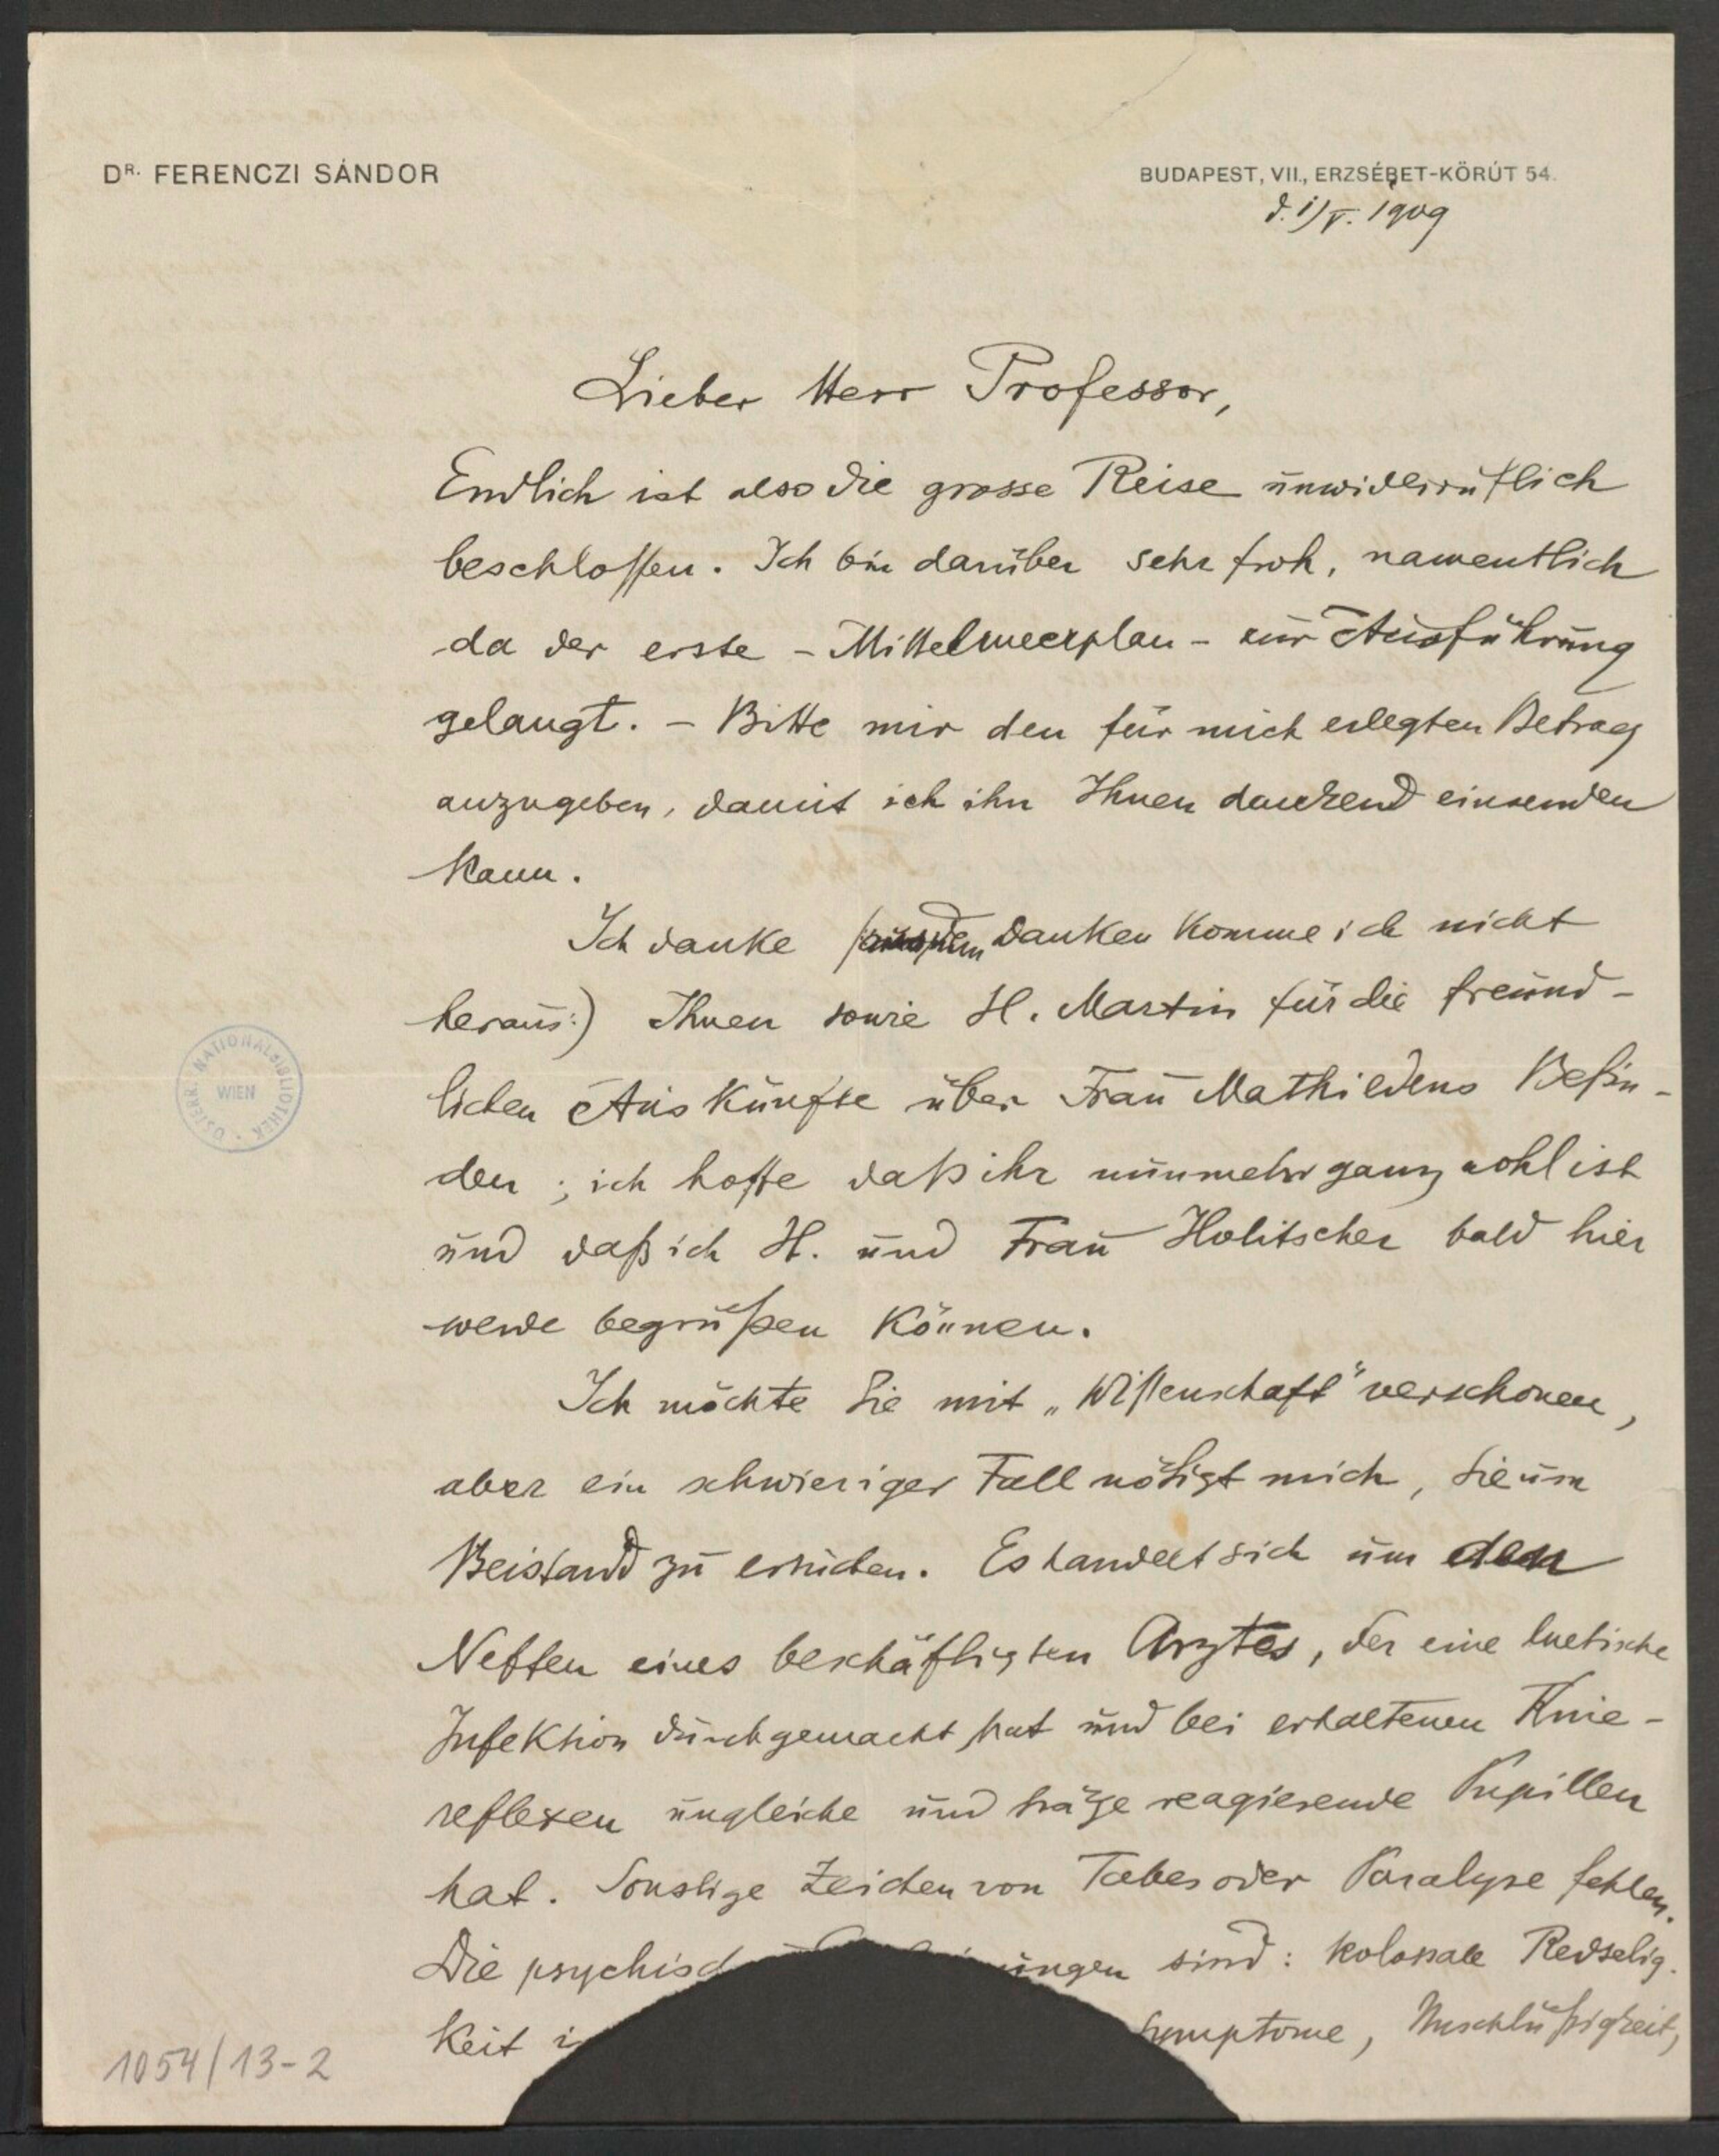 DR. FERENCZI SÁNDOR
BUDAPEST, VII., ERZSÉBET-KÖRÚT 54.
d. 1/V. 1909
Lieber Herr Professor,
Endlich ist also die grosse Reise unwiderruflich
beschlossen. Ich bin darüber sehr froh, namentlich
da der erste - Mittelmeerplan - zur Ausführung
gelangt. - Bitte mir den für mich erlegten Betrag
anzugeben, damit ich ihn Ihnen dankend einsenden
kann.
Ich danke danken komme ich nicht
heraus:) Ihnen sowie H. Martin für die freund-
lichen Auskünfte über Frau Mathildens Befin-
den; ich hoffe daß ihr nunmehr ganz wohl ist
und daß ich H. und Frau Holitscher bald hier
werde begrüßen können.
Ich möchte Sie mit „Wissenschaft" verschonen,
aber ein schwieriger Fall nötigt mich, Sie um
Beistand zu ersuchen. Es handelt sich um den
Neffen eines beschäftigten Arztes, der eine luetische
Infektion durchgemacht hat und bei erhaltenen Knie-
reflexen ungleiche und träge reagierende Pupillen
hat. Sonstige Zeichen von Tabes oder Paralyse fehlen.
Die psychisch ungen sind: kolossale Redselig-
keit i symptome, Unschlüßigkeit,
ÖSTERR. NATIONALBIBLIOTHEK
WIEN
1054/13-2